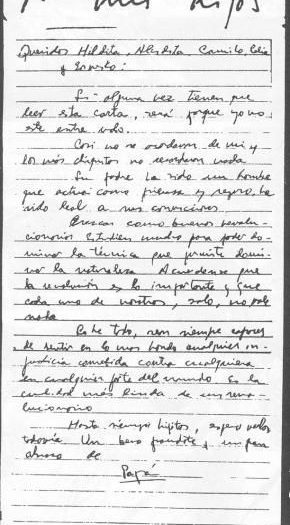 A mis hijos
Queridos Hildita, Aleidita, Camilo, Celia
y Ernesto:
Si alguna vez tienen que
leer esta carta, será porque yo no
esté entre Uds.
Casi no se acordaran de mi y
los más chiquitos no recordaran nada
Su padre ha sido un hombre
que actúa como piensa y, seguro, ha
sido leal a sus convicciones.
Crezcan como buenos revolu-
cionarios. Estudien mucho para poder do-
minar la técnica que permite domi-
nar la naturaleza. Acuérdense que
la revolución es lo importante y que
cada uno de nosotros, solo, no vale
nada
Sobre todo, sean siempre capaces
de sentir en lo más hondo cualquier in-
justicia cometida contra cualquiera
en cualquier parte del mundo. Es la
cualidad más linda de un revo-
lucionario
Hasta siempre hijitos, espero verlos
todavía. Un beso grandote y un gran
abrazo de
Papá